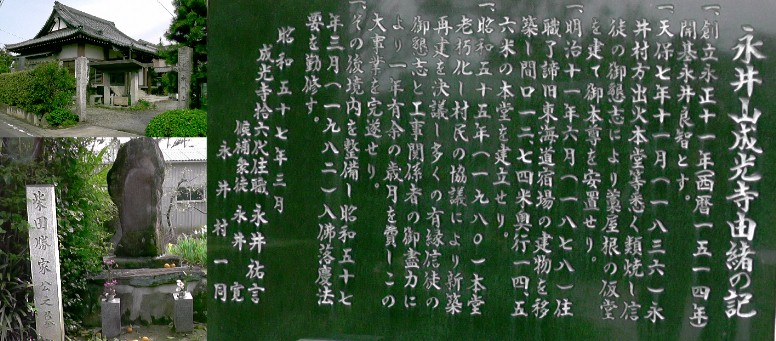 永井山成光寺由緒の記
一、創立永正十一年(西暦一五一四年)
開基永井良皆とす。
一、天保七年十一月(一八三六)永
井村方出火本堂等悉く類焼し信
徒の御懇志により藁屋根の仮堂
を建て御本尊を安置せり。
一、明治十一年六月(一八七八)住
職了諦旧東海道宿場の建物を移
築し間口一二、七四米奥行一四、五
六米の本堂を建立せり。
一、昭和五十五年(一九八〇)本堂
老朽化し村民の協議により新築
再建を決議し多くの有縁信徒の
御懇志と工事関係者の御盡力に
より一年有余の歳月を費しこの
大事業を完遂せり。
一、その後境内を整備し昭和五十七
年三月(一九八二)入佛落慶法
要を勤修す。
昭和五十七年三月
成光寺拾六代住職 永井祐言
候補衆徒 永井 寛
永井村一同
柴田勝家公之墓